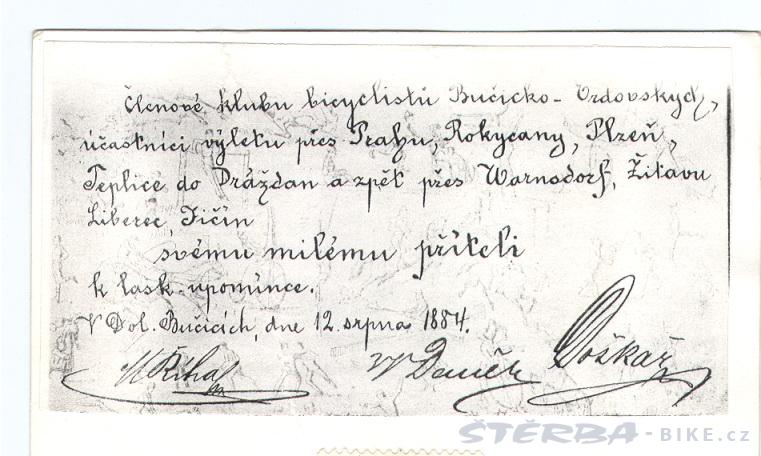 Členové klubu bicyclistů Bučicko-Ovdovských,
účastníci výletu přes Prahu, Rokycany, Plzeň,
Teplice do Dráždan a zpět přes Warnsdorf, Žitavu
Liberec, Jičín
svému milému příteli
k lask. upomínce.
V Dol. Bučicích, dne 12. srpna 1884.
Říha
V Daněk Doškář
ŠTĚRBA-BIKE.cz